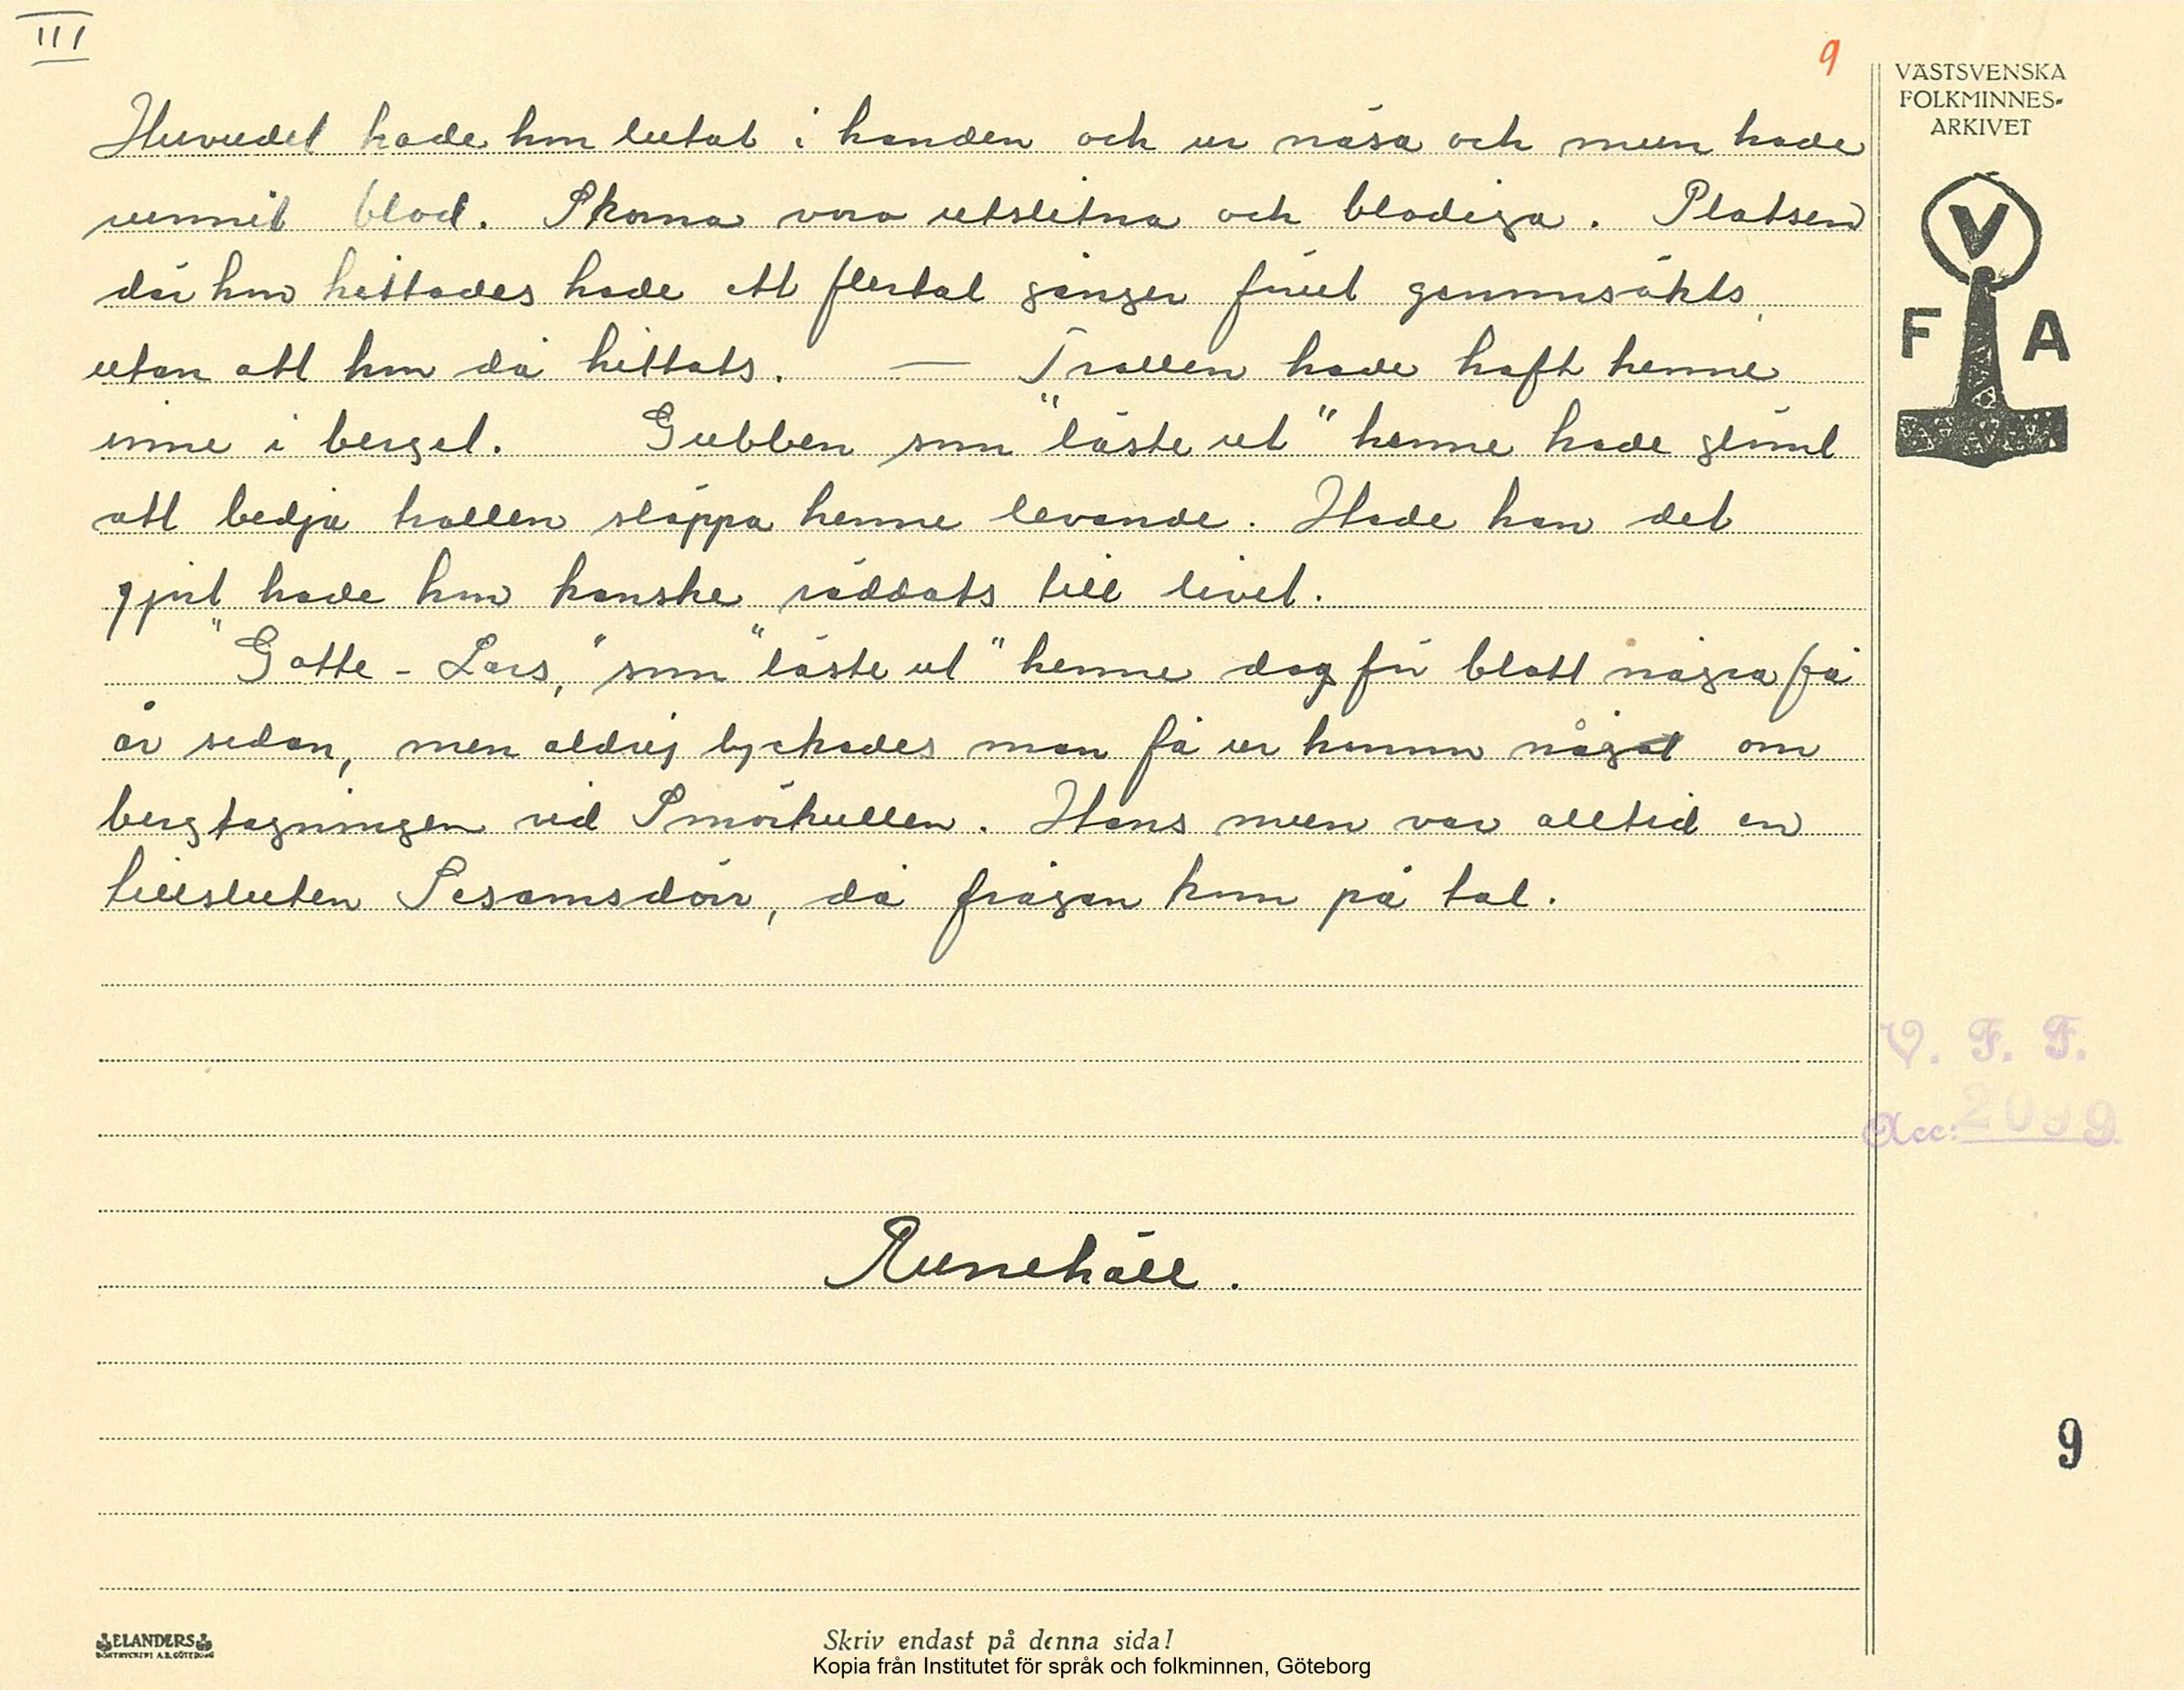 III
9
VÄSTSVENSKA
FOLKMINNES-
ARKIVET
V
F A
Huvudet hade hon lutat i handen och ur näsa och mun hade
runnit blod. Skorna voro utslitna och blodiga. Platsen
där hon hittades hade ett flertal gånger förut genomsökts,
utan att hon då hittats. — Trollen hade haft henne
inne i berget. Gubben som "läste ut" henne hade glömt
att bedja trollen släppa henne levande. Hade han det
gjort hade hon kanske räddats till livet.
"Gatte-Lars," som "läste ut" henne dog för blott några få
år sedan, men aldrig lyckades man få ur honom något om
bergtagningen vid Smörkullen. Hans mun var alltid en
tillsluten Sesamsdörr, då frågan kom på tal.
V. F. F.
Acc: 2099
Runehäll.
9
ELANDERS
BOKTRYCKERI A.B. GÖTEBORG
Skriv endast på denna sida!
Kopia från Institutet för språk och folkminnen, Göteborg